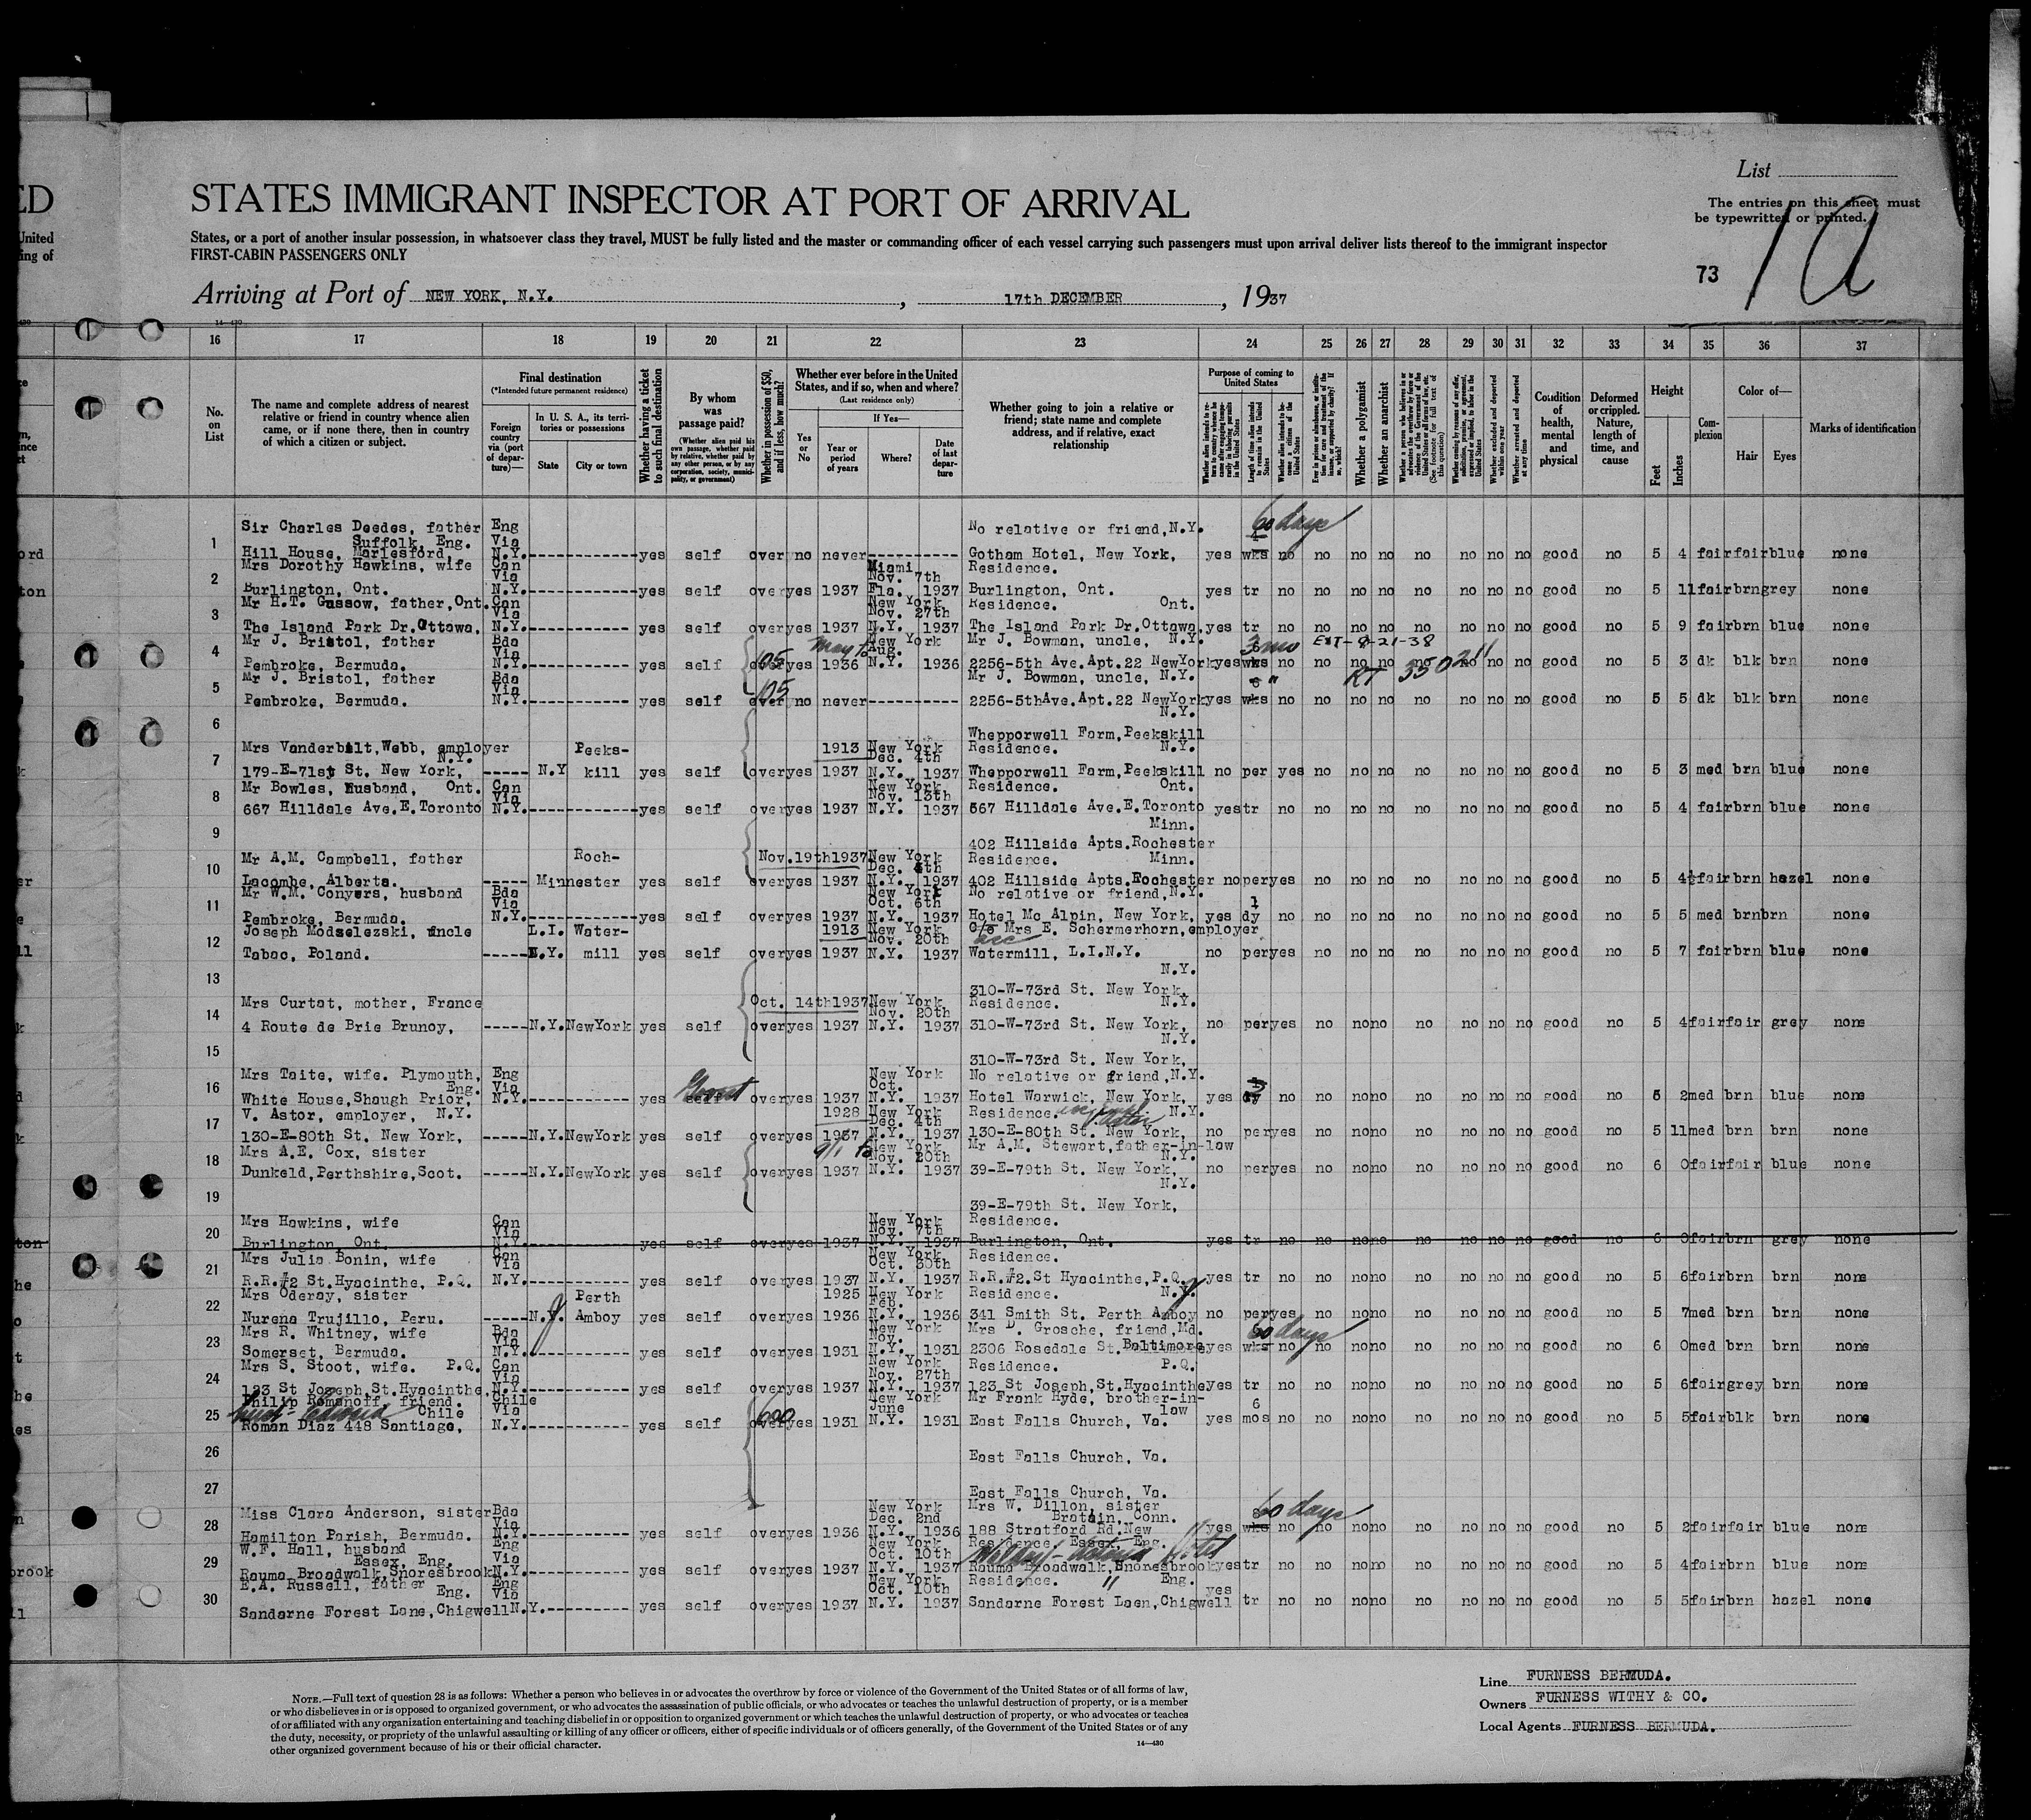 List
STATES IMMIGRANT INSPECTOR AT PORT OF ARRIVAL
The entries on this sheet must
be typewritten or printed.
States, or a port of another insular possession, in whatsoever class they travel, MUST be fully listed and the master or commanding officer of each vessel carrying such passengers must upon arrival deliver lists thereof to the immigrant inspector
FIRST-CABIN PASSENGERS ONLY
73
1a
Arriving at Port of NEW YORK, N.Y. , 17th DECEMBER , 1937
16 17 18 19 20 21 22 23 24 25 26 27 28 29 30 31 32 33 34 35 36 37
No. on List
The name and complete address of nearest relative or friend in country whence alien came, or if none there, then in country of which a citizen or subject.
Final destination
(*Intended future permanent residence)
Foreign country via (port of departure)—
In U. S. A., its territories or possessions
State
City or town
Whether having a ticket to such final destination
By whom was passage paid?
(Whether alien paid his own passage, whether paid by relative, whether paid by any other person, or by any corporation, society, municipality, or government)
Whether in possession of $50, and if less, how much?
Whether ever before in the United States, and if so, when and where?
(Last residence only)
Yes or No
If Yes—
Year or period of years
Where?
Date of last departure
Whether going to join a relative or friend; state name and complete address, and if relative, exact relationship
Purpose of coming to United States
Whether alien intends to return to country whence he came after engaging temporarily in laboring pursuits in the United States
Length of time alien intends to remain in the United States
Whether alien intends to become a citizen of the United States
Whether a polygamist
Whether an anarchist
Whether excluded and deported within one year
Whether arrested and deported at any time
Condition of health, mental and physical
Deformed or crippled. Nature, length of time, and cause
Height
Feet
Inches
Complexion
Color of—
Hair
Eyes
Marks of identification
1 Sir Charles Deedes, father Eng No relative or friend, N.Y. 60 days
Suffolk, Eng. Via
Hill House, Marlesford, N.Y. yes self over no never Gotham Hotel, New York, yes wks no no no no no no no no good no 5 4 fair fair blue none
2 Mrs Dorothy Hawkins, wife Can Via Miami Nov. 7th Residence.
Burlington, Ont. N.Y. yes self over yes 1937 Fla. 1937 Burlington, Ont. yes tr no no no no no no no no good no 5 11 fair brn grey none
3 Mr H.T. Gussow, father, Ont. Can Via New York Nov. 27th Residence. Ont.
The Island Park Dr. Ottawa, N.Y. yes self over yes 1937 N.Y. 1937 The Island Park Dr. Ottawa, yes tr no no no no no no no no good no 5 9 fair brn blue none
4 Mr J. Bristol, father Bda Via May to New York Aug. Mr J. Bowman, uncle, N.Y. 3 mo EXT-8-21-38
Pembroke, Bermuda. N.Y. yes self over 105 yes 1936 N.Y. 1936 2256-5th Ave. Apt. 22 New York yes wks no no no no no no no no good no 5 3 dk blk brn none
5 Mr J. Bristol, father Bda Via 105 Mr J. Bowman, uncle, N.Y. 6 " RT 350211
Pembroke, Bermuda. N.Y. yes self over no never 2256-5th Ave. Apt. 22 New York yes wks no no no no no no no no good no 5 5 dk blk brn none
6 N.Y.
Whepporwell Farm, Peekskill
7 Mrs Vanderbilt, Webb, employer N.Y. Peeks- 1913 New York Dec. 4th Residence. N.Y.
179-E-71st St. New York, N.Y kill yes self over yes 1937 N.Y. 1937 Whepporwell Farm, Peekskill no per yes no no no no no no no good no 5 3 med brn blue none
8 Mr Bowles, Husband, Ont. Can Via New York Nov. 13th Residence. Ont.
667 Hilldale Ave. E. Toronto N.Y. yes self over yes 1937 N.Y. 1937 667 Hilldale Ave. E. Toronto yes tr no no no no no no no no good no 5 4 fair brn blue none
9 Minn.
402 Hillside Apts. Rochester
10 Mr A.M. Campbell, father Roch- Nov. 19th 1937 New York Dec. 4th Residence. Minn.
Lacombe, Alberta. Minn ester yes self over yes 1937 N.Y. 1937 402 Hillside Apts. Rochester no per yes no no no no no no no good no 5 4½ fair brn hazel none
11 Mr W.M. Conyers, husband Bda Via New York Oct. 6th No relative or friend, N.Y. 1
Pembroke, Bermuda. N.Y. yes self over yes 1937 N.Y. 1937 Hotel Mc Alpin, New York, yes dy no no no no no no no no good no 5 5 med brn brn none
12 Joseph Modzelezski, uncle L.I. Water- 1913 New York Nov. 20th C/o Mrs E. Schermerhorn, employer
Tabac, Poland. N.Y. mill yes self over yes 1937 N.Y. 1937 Watermill, L.I.N.Y. no per yes no no no no no no no good no 5 7 fair brn blue none
13 N.Y.
310-W-73rd St. New York,
14 Mrs Curtat, mother, France Oct. 14th 1937 New York Nov. 20th Residence. N.Y.
4 Route de Brie Brunoy, N.Y. New York yes self over yes 1937 N.Y. 1937 310-W-73rd St. New York, no per yes no no no no no no no good no 5 4 fair fair grey none
15 N.Y.
310-W-73rd St. New York,
16 Mrs Taite, wife. Plymouth, Eng. Eng Via New York Oct. No relative or friend, N.Y.
White House, Shaugh Prior, N.Y. yes self over yes 1937 N.Y. 1937 Hotel Warwick, New York, yes no no no no no no no no good no 5 2 med brn blue none
17 V. Astor, employer, N.Y. 1928 New York Dec. 4th Residence. N.Y.
130-E-80th St. New York, N.Y. New York yes self over yes 1937 N.Y. 1937 130-E-80th St. New York, no per yes no no no no no no no good no 5 11 med brn brn none
18 Mrs A.E. Cox, sister 9/1 to New York Nov. 20th Mr A.M. Stewart, father-in-law N.Y.
Dunkeld, Perthshire, Scot. N.Y. New York yes self over yes 1937 N.Y. 1937 39-E-79th St. New York, no per yes no no no no no no no good no 6 0 fair fair blue none
19 N.Y.
39-E-79th St. New York,
20 Mrs Hawkins, wife Can Via New York Nov. 7th Residence.
Burlington, Ont. N.Y. yes self over yes 1937 N.Y. 1937 Burlington, Ont. yes tr no no no no no no no no good no 6 0 fair brn grey none
21 Mrs Julia Bonin, wife Can Via New York Oct. 30th Residence.
R.R.#2 St. Hyacinthe, P.Q. N.Y. yes self over yes 1937 N.Y. 1937 R.R.#2. St Hyacinthe, P.Q. yes tr no no no no no no no no good no 5 6 fair brn brn none
22 Mrs Oderay, sister Perth 1925 New York Feb. Residence. N.Y.
Nurena Trujillo, Peru. N.Y. Amboy yes self over yes 1936 N.Y. 1936 341 Smith St. Perth Amboy no per yes no no no no no no no good no 5 7 med brn brn none
23 Mrs R. Whitney, wife Bda Via New York Nov. Mrs D. Grosche, friend, Md. 60 days
Somerset, Bermuda. N.Y. yes self over yes 1931 N.Y. 1931 2306 Rosedale St. Baltimore yes wks no no no no no no no no good no 6 0 med brn brn none
24 Mrs S. Stoot, wife. P.Q. Can Via New York Nov. 27th Residence. P.Q.
123 St Joseph, St. Hyacinthe, N.Y. yes self over yes 1937 N.Y. 1937 123 St Joseph, St. Hyacinthe yes tr no no no no no no no no good no 5 6 fair grey brn none
25 Philip Romanoff, friend. Chile Chile Via 600 New York June Mr Frank Hyde, brother-in-law 6
Roman Diaz 448 Santiago, N.Y. yes self over yes 1931 N.Y. 1931 East Falls Church, Va. yes mos no no no no no no no no good no 5 5 fair blk brn none
26 East Falls Church, Va.
27 East Falls Church, Va.
28 Miss Clara Anderson, sister Bda Via New York Dec. 2nd Mrs W. Dillon, sister Bratain, Conn. 60 days
Hamilton Parish, Bermuda. N.Y. yes self over yes 1936 N.Y. 1936 188 Stratford Rd. New yes wks no no no no no no no no good no 5 2 fair fair blue none
29 W.F. Hall, husband Essex, Eng. Eng Via New York Oct. 10th Residence, Essex, Eng. Waldorf-Astoria Hotel
Rauma Broadwalk, Snoresbrook N.Y. yes self over yes 1937 N.Y. 1937 Rauma Broadwalk, Snoresbrook yes tr no no no no no no no no good no 5 4 fair brn blue none
30 E.A. Russell, father Eng. Eng Via New York Oct. 10th Residence. " Eng. yes
Sandarne Forest Lane, Chigwell N.Y. yes self over yes 1937 N.Y. 1937 Sandarne Forest Laen, Chigwell tr no no no no no no no no good no 5 5 fair brn hazel none
NOTE.—Full text of question 28 is as follows: Whether a person who believes in or advocates the overthrow by force or violence of the Government of the United States or of all forms of law,
or who disbelieves in or is opposed to organized government, or who advocates the assassination of public officials, or who advocates or teaches the unlawful destruction of property, or is a member
of or affiliated with any organization entertaining and teaching disbelief in or opposition to organized government or which teaches the unlawful destruction of property, or who advocates or teaches
the duty, necessity, or propriety of the unlawful assaulting or killing of any officer or officers, either of specific individuals or of officers generally, of the Government of the United States or of any
other organized government because of his or their official character.
14—430
Line FURNESS BERMUDA.
Owners FURNESS WITHY & CO.
Local Agents FURNESS BERMUDA.